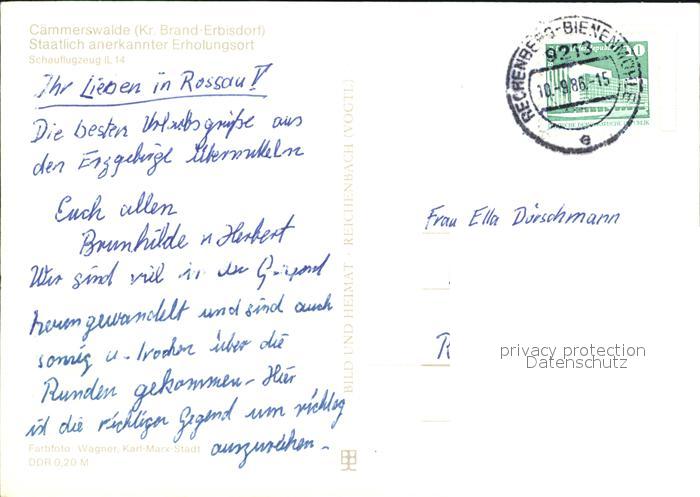 Cämmerswalde (Kr. Brand-Erbisdorf)
Staatlich anerkannter Erholungsort
Schauflugzeug IL 14
Ihr Lieben in Rossau!
Die besten Urlaubsgrüße aus
den Erzgebirge übermitteln
Euch allen
Brunhilde u Herbert
Wir sind viel in der Gegend
herumgewandelt und sind auch
sonnig u. trocken über die
Runden gekommen. Hier
ist die richtige Gegend um richtig
auszuruhen.
Farbfoto: Wagner, Karl-Marx-Stadt
DDR 0,20 M
BILD UND HEIMAT · REICHENBACH (VOGTL)
RECHENBERG-BIENENMÜHLE
9213
10.-9.86.-15
e
Frau Ella Dörschmann
R
privacy protection
Datenschutz